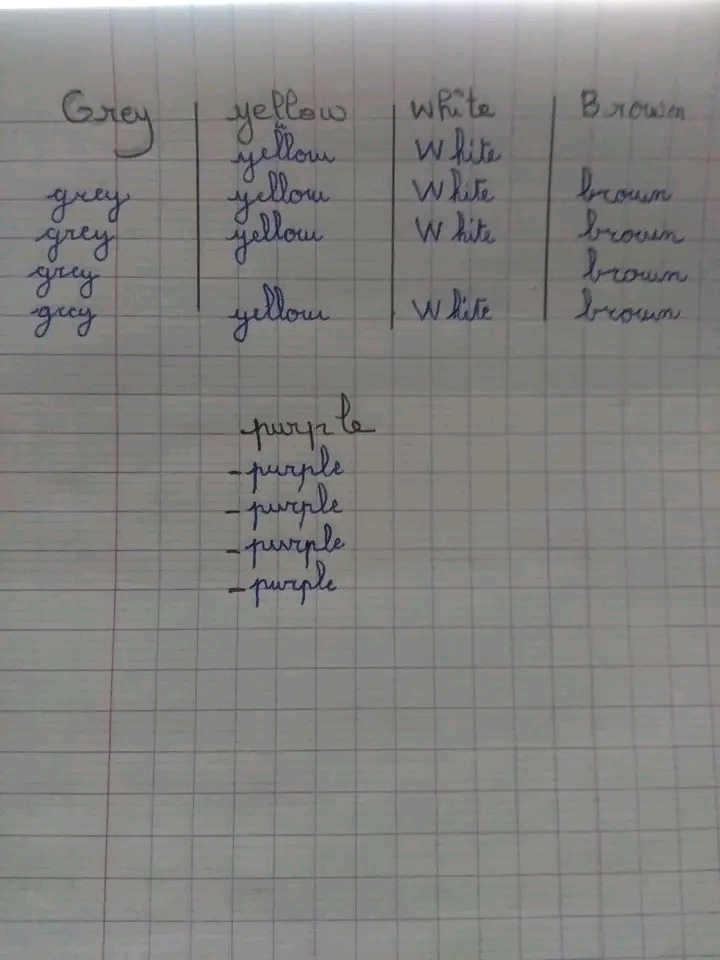 Grey yellow white Brown
yellow White
grey yellow White brown
grey yellow White brown
grey brown
grey yellow White brown
purple
- purple
- purple
- purple
- purple